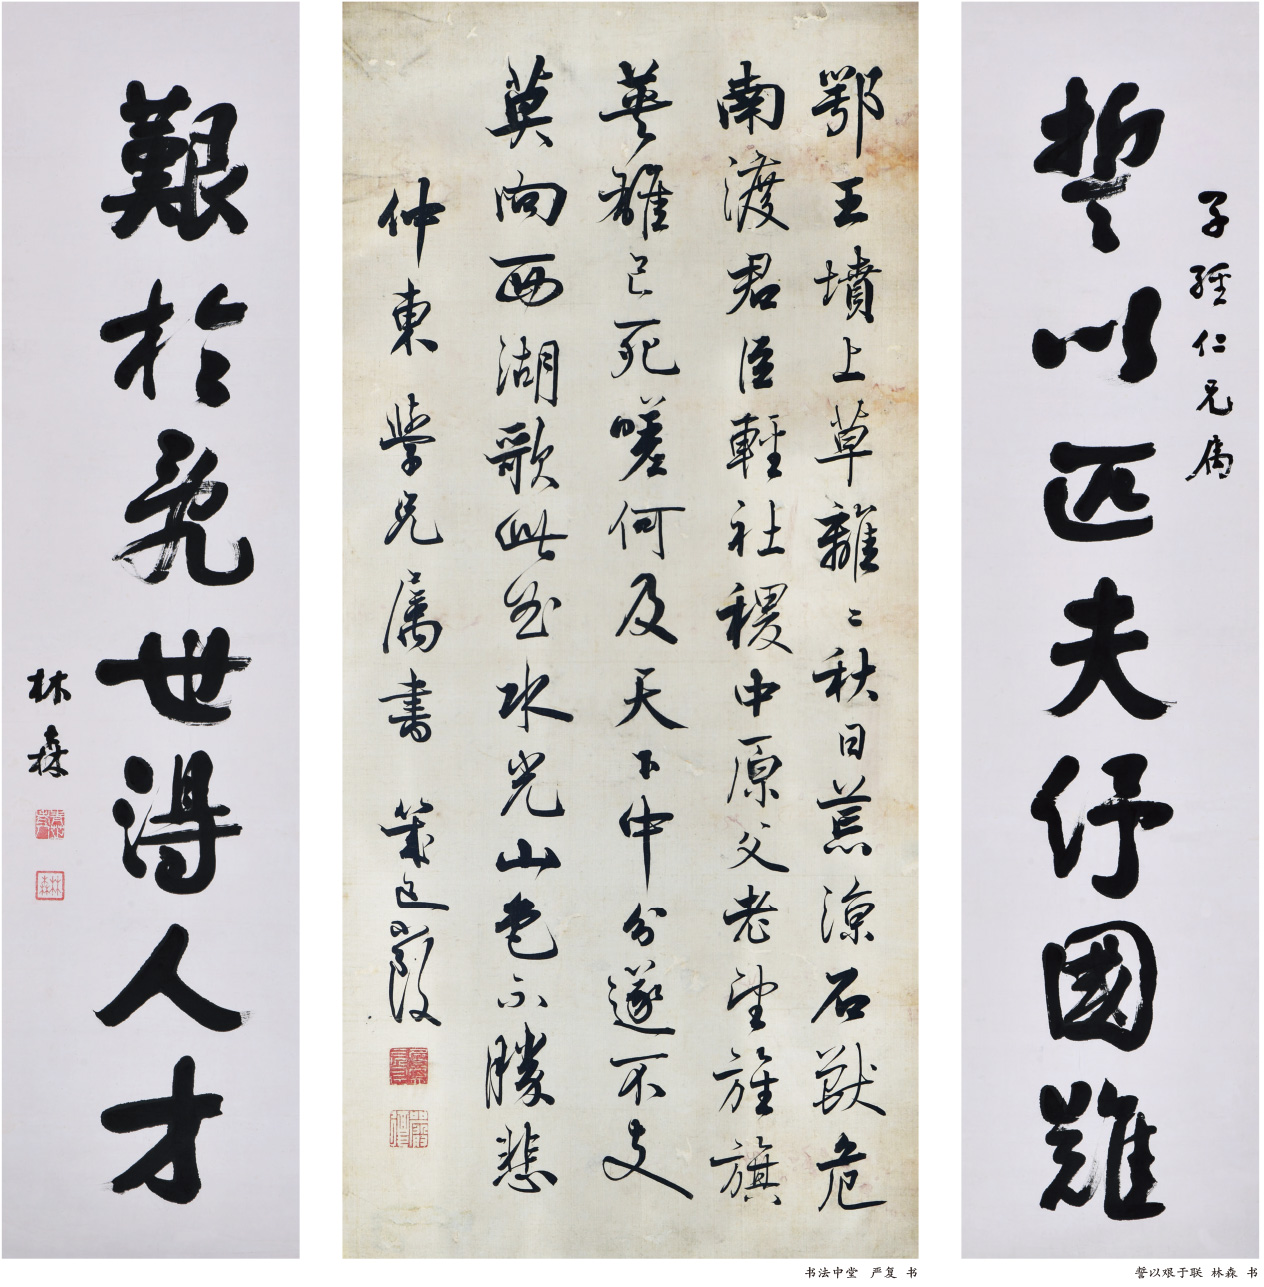 子經仁兄属
誓以匹夫紓國難
鄂王墳上草離〻秋日荒涼石獸危
南渡君臣輕社稷中原父老望旌旗
英雄已死嗟何及天下中分遂不支
莫向西湖歌此曲水光山色不勝悲
仲東學兄属書 幾道嚴復
艱於亂世得人才
林森
林森
书法中堂 严复 书
誓以艰于联 林森 书